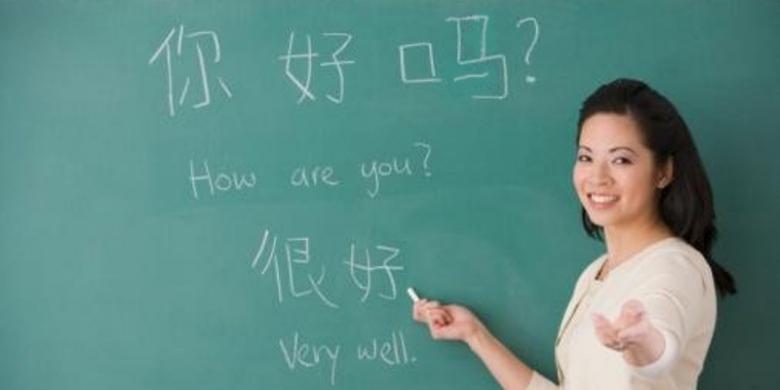 你好吗?
How are you?
很好
Very well.